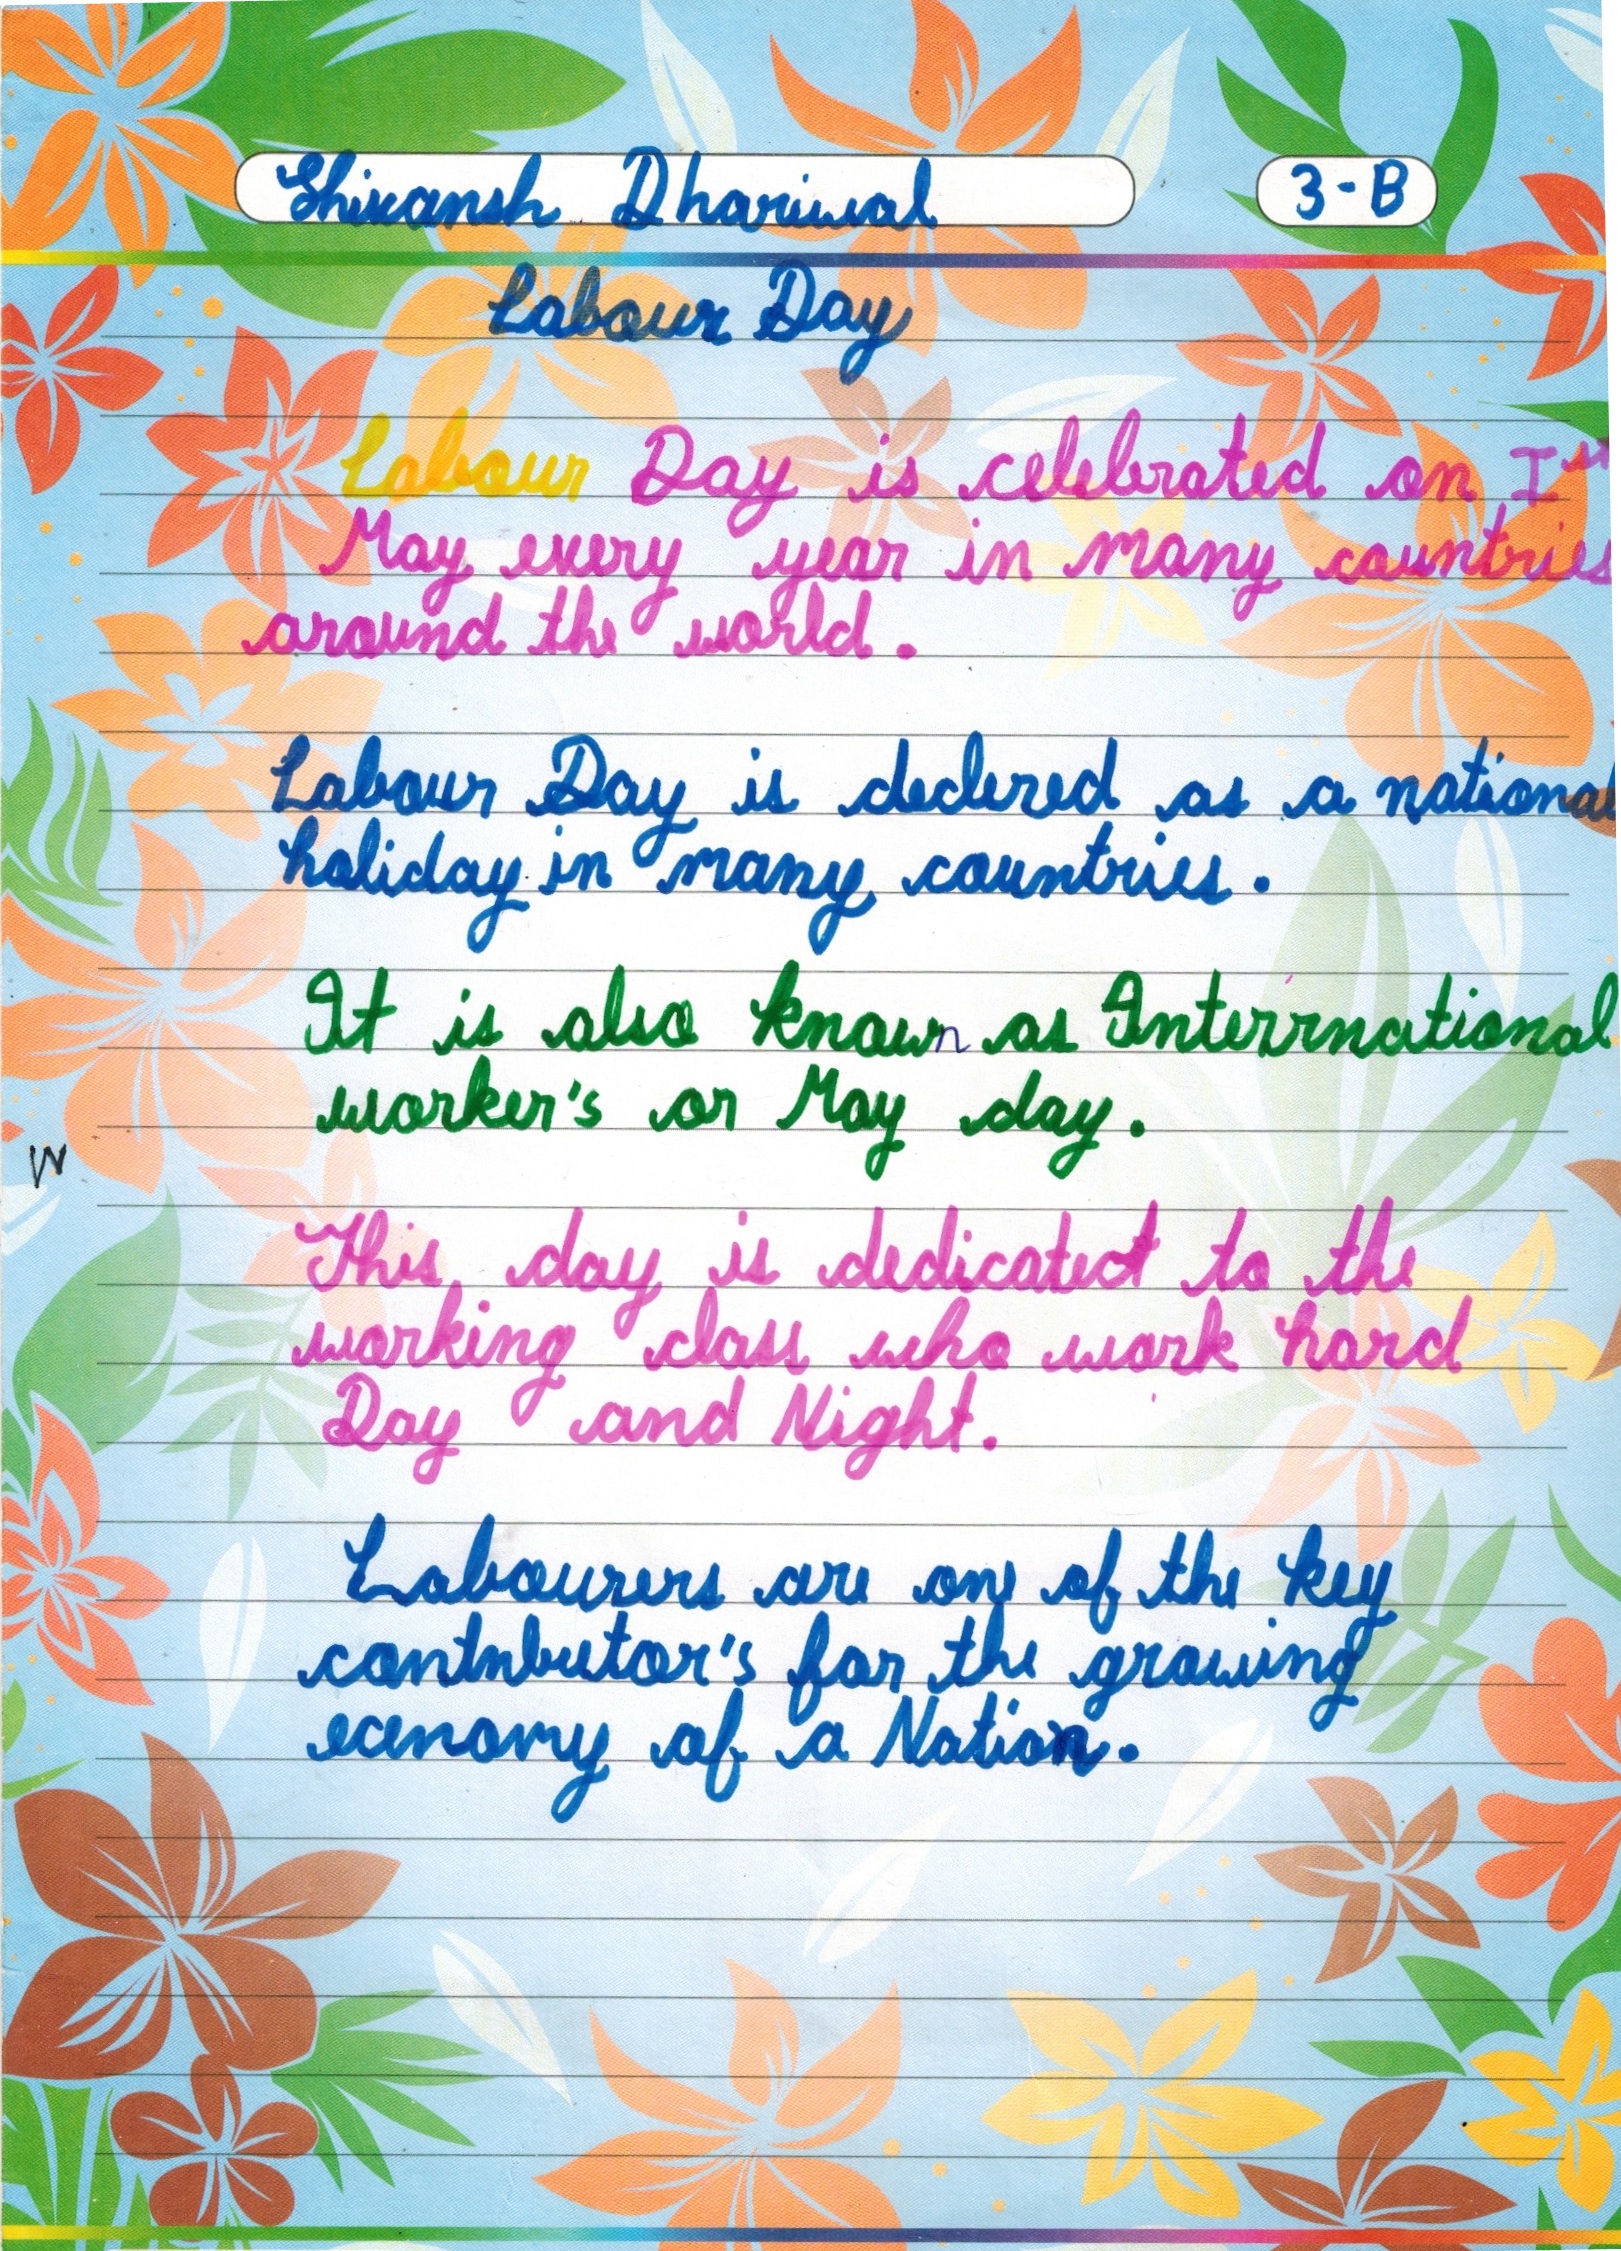 Shivansh Dhariwal
3-B
Labour Day
Labour Day is celebrated on Ist
May every year in many countries
around the world.
Labour Day is declered as a national
holiday in many countries.
It is also known as Interrnational
worker's or May day.
W
This day is dedicated to the
working class who work hard
Day and Night.
Labourers are one of the key
contributor's for the growing
ecenomy of a Nation.